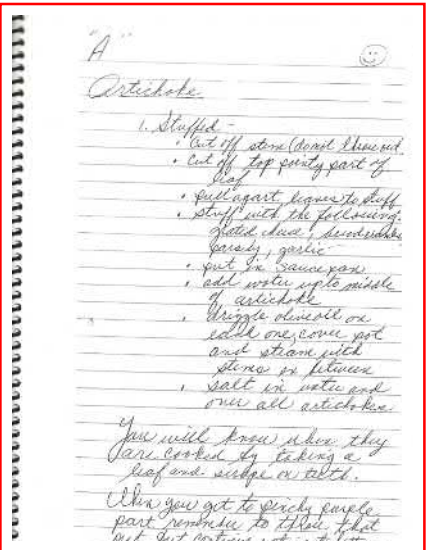 "A"
Artichoke
1. Stuffed -
• Cut off stem (do not throw out
• Cut off top pointy part of
leaf
• pull apart leaves to stuff
• stuff with the following:
grated cheese, breadcrumbs
parsley, garlic -
• put in sauce pan
• add water up to middle
of artichoke
• drizzle olive oil on
each one, cover pot
and steam with
stems in between
• salt in water and
over all artichokes
You will know when they
are cooked by taking a
leaf and scrape on teeth.
When you get to pinchy purple
part remember to throw that
out but continue